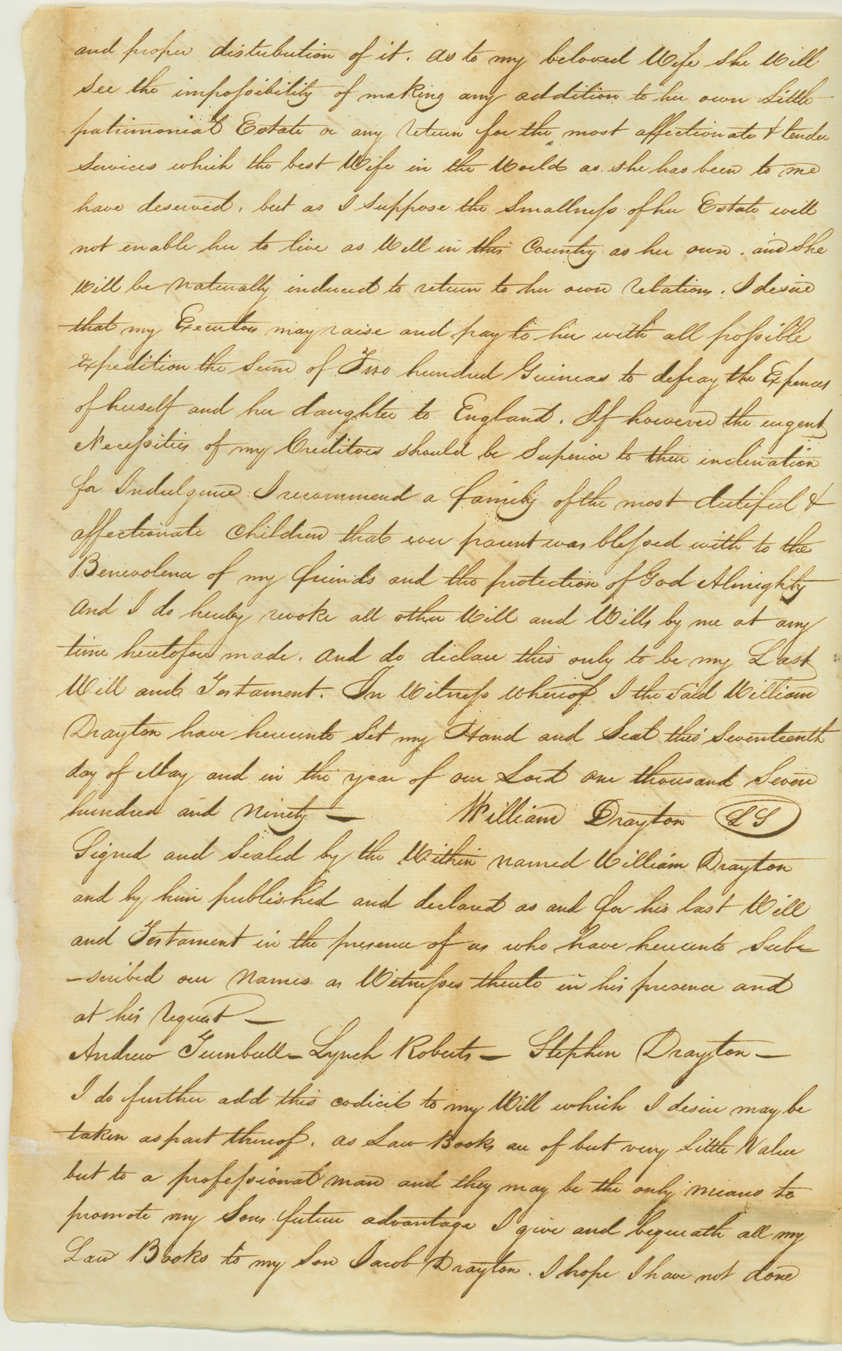 and proper distribution of it. as to my beloved Wife she Will
see the impossibility of making any addition to her own Little
patrimonial Estate or any return for the most affectionate & tender
services which the best Wife in the World as she has been to me
have deserved, but as I suppose the Smallness of her Estate will
not enable her to live as Well in this Country as her own. and She
Will be naturally induced to return to her own relations. I desire
that my Executors may raise and pay to her with all possible
expedition the Sum of Two hundred Guineas to defray the Expences
of herself and her daughter to England. If however the urgent
Necessities of my Creditors should be Superior to their inclination
for Indulgence I recommend a family of the most dutifull &
affectionate children that ever parent was blessed with to the
Benevolence of my friends and the protection of God Almighty
And I do hereby revoke all other Will and Wills by me at any
time heretofore made. and do declare this only to be my Last
Will and Testament. In Witness whereof I the said William
Drayton have hereunto Set my Hand and Seal this Seventeenth
day of May and in the year of our Lord one thousand Seven
hundred and Ninety — William Drayton LS
Signed and Sealed by the Within named William Drayton
and by him published and declared as and for his last Will
and Testament in the presence of us who have hereunto Sub-
-scribed our Names as Witnesses thereto in his presence and
at his request —
Andrew Turnbull — Lynch Roberts — Stephen Drayton —
I do further add this codicil to my Will which I desire may be
taken as part thereof. as Law Books are of but very Little Value
but to a professional man and they may be the only means to
promote my Sons future advantage I give and bequeath all my
Law Books to my Son Jacob Drayton. I hope I have not done